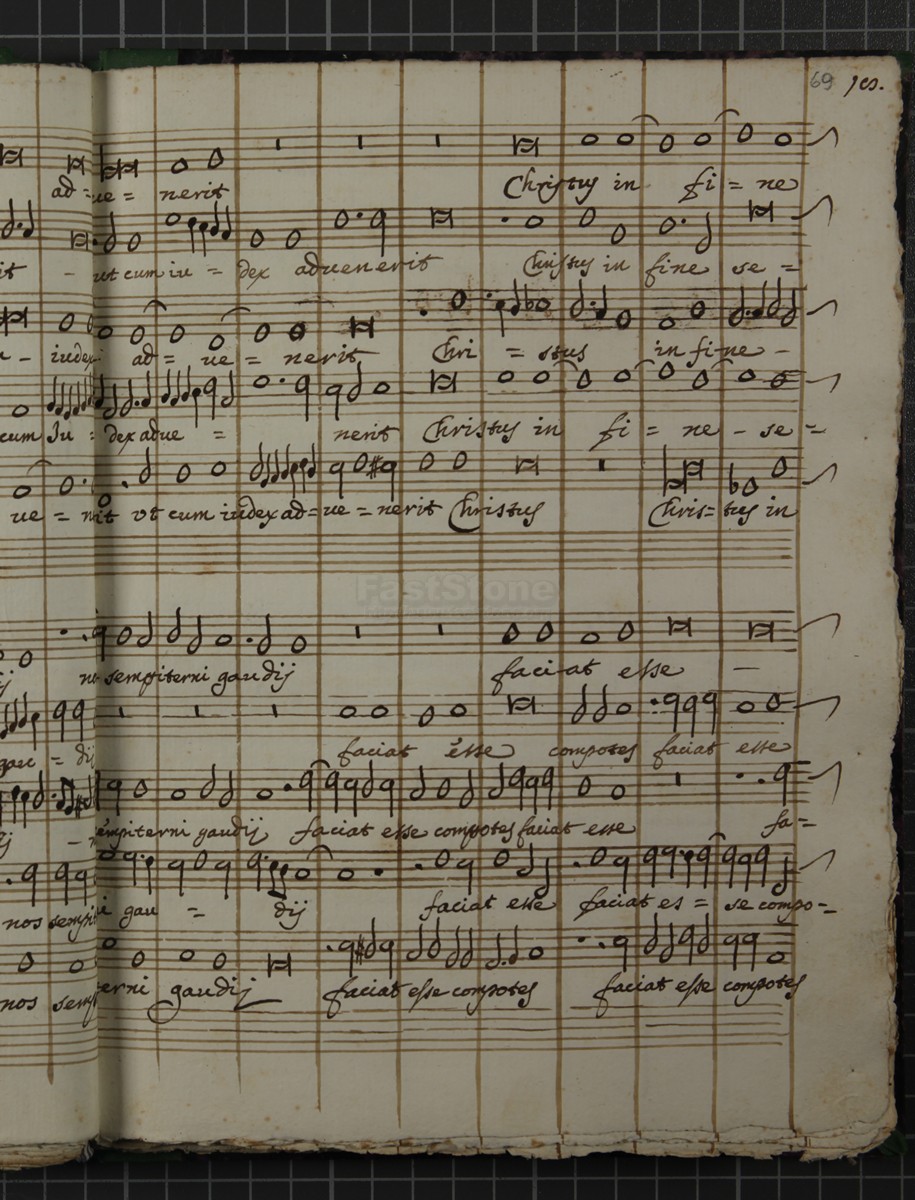 69 jes.
ad = ue = nerit Christus in fi = ne
rit - ut cum iu = dex aduenerit Christus in fine se =
u - iudex ad = ue = nerit Chri = stus in fine -
cum Iu = dex adue = nerit Christus in fi = ne - se -
ue = nit vt cum iudex ad = ue = nerit Christus Chris = tus in
FastStone
sempiterni gaudij faciat esse -
gau = dij faciat esse compotes faciat esse
empiterni gaudij faciat esse compotes faciat esse fa =
nos sempit gau = dij faciat esse faciat es = se compo -
nos semp erni gaudij faciat esse compotes faciat esse compotes